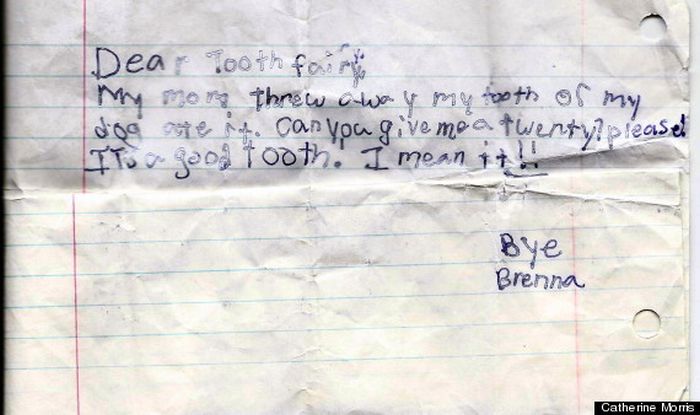 Dear Tooth fairy
My mom threw away my tooth or my
dog ate it. Can you give me a twenty? please!
ITs a good tooth! I mean it!!
Bye
Brenna
Catherine Morris